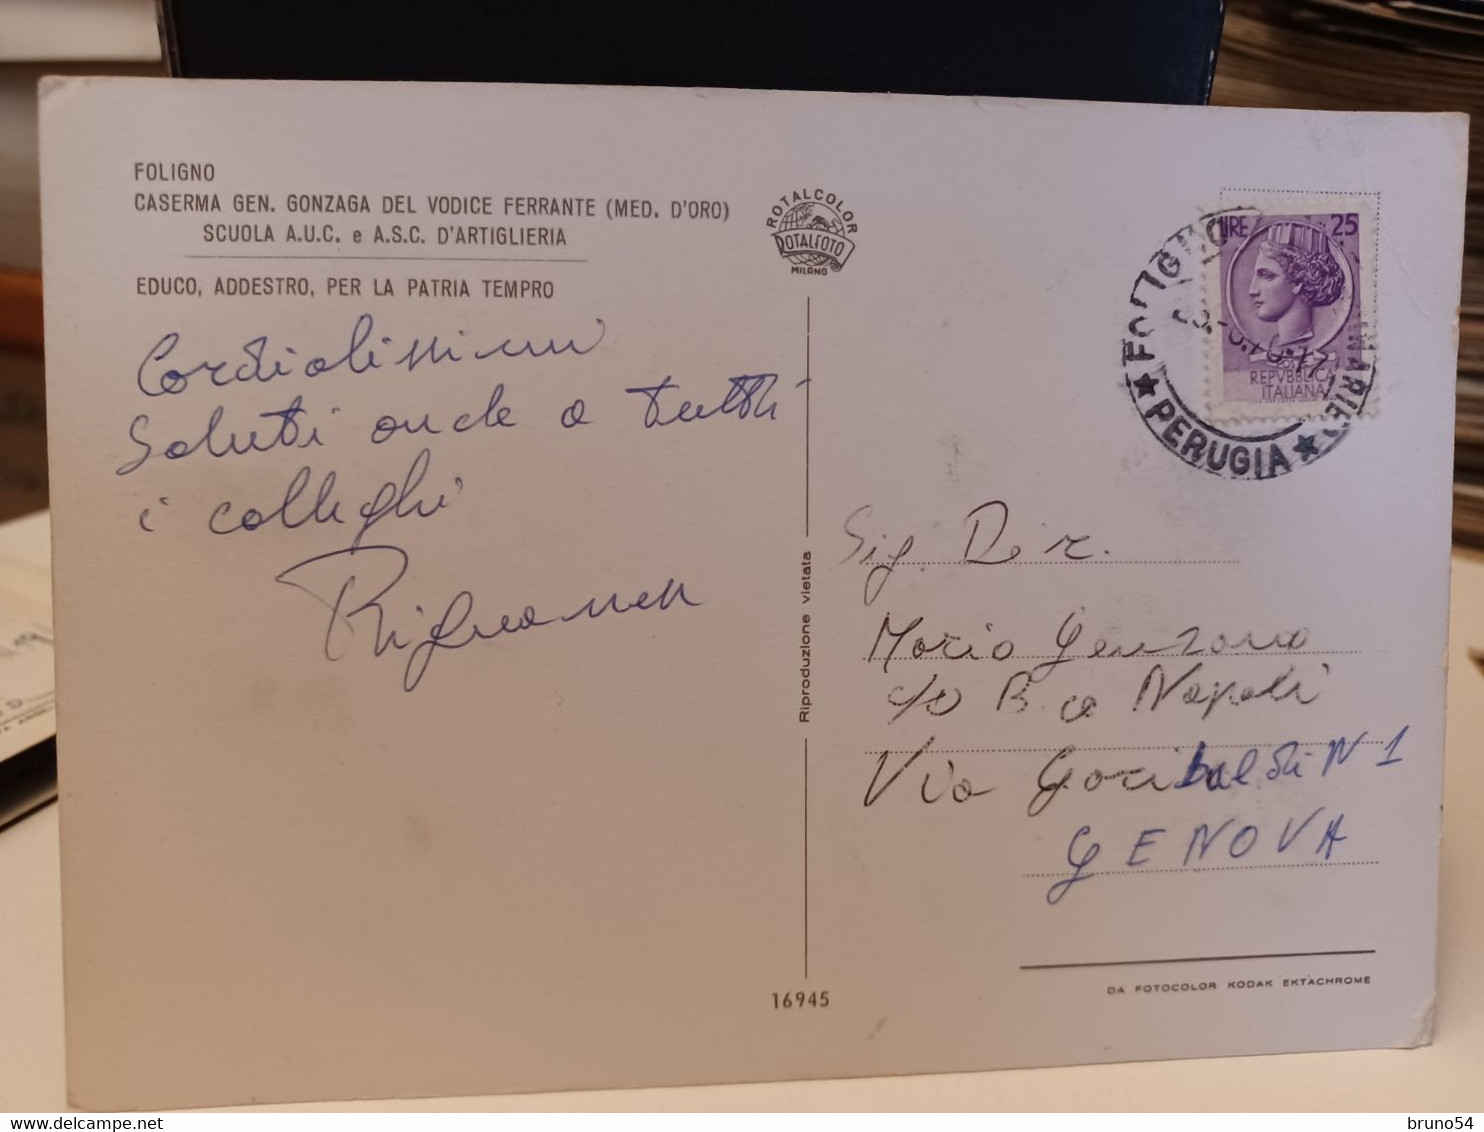 FOLIGNO
CASERMA GEN. GONZAGA DEL VODICE FERRANTE (MED. D'ORO)
SCUOLA A.U.C. e A.S.C. D'ARTIGLIERIA
EDUCO, ADDESTRO, PER LA PATRIA TEMPRO
Cordialissimi
Saluti anche a tutti
i colleghi
ROTALCOLOR
ROTALFOTO
MILANO
Riproduzione vietata
16945
LIRE 25
REPVBBLICA
ITALIANA
FOLIGNO
PERUGIA
Sig. Dir.
Mario Genzana
c/o B.ca Napoli
Via Garibaldi N 1
GENOVA
DA FOTOCOLOR KODAK EKTACHROME
bruno54